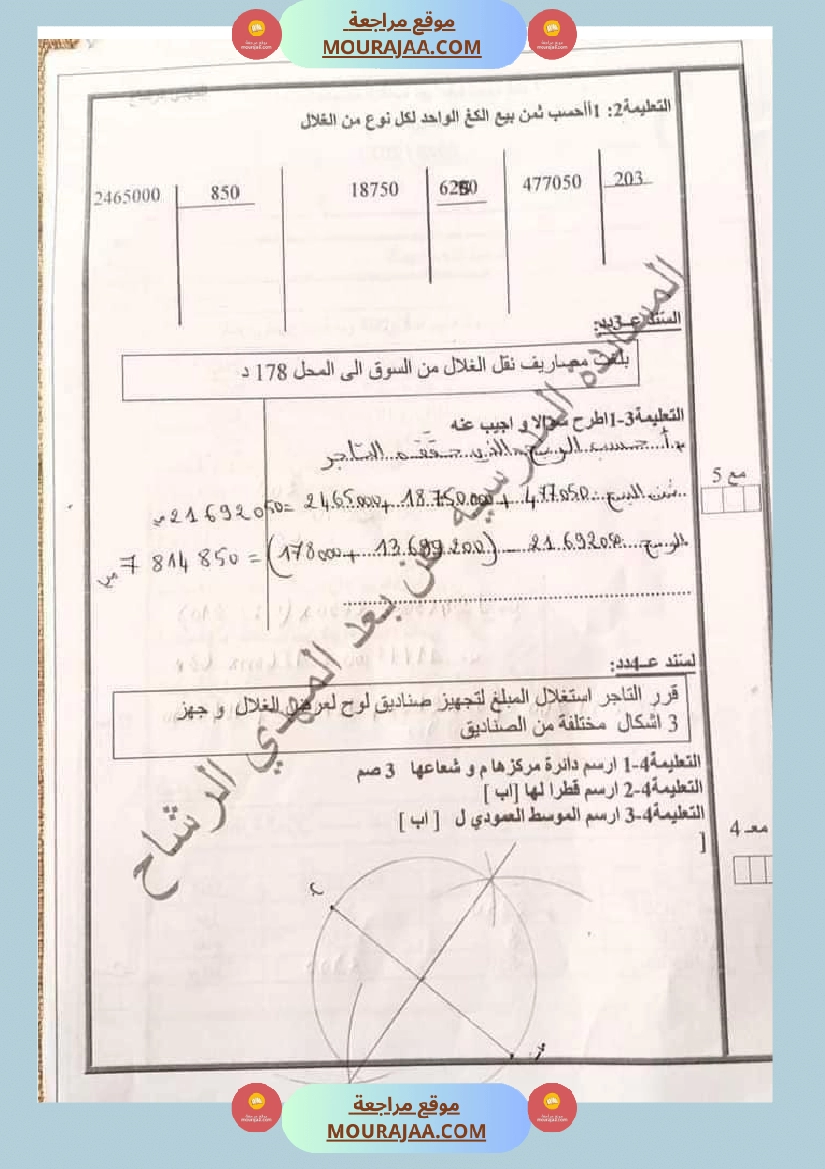 موقع مراجعة
MOURAJAA.COM
التعليمة2: 1أأحسب ثمن بيع الكغ الواحد لكل نوع من الغلال
2465000 850 18750 6250 477050 203
السند عـ3ـدد:
بلغت مصاريف نقل الغلال من السوق الى المحل 178 د
التعليمة3-1اطرح سؤالا و اجيب عنه
أحسب الربح الذي حققه التاجر
مع 5
ثمن البيع: 477050 + 18.750.000 + 2465000 = 21692050 مي
الربح 21692050 - (13.699.200 + 178000) = 7 814 850 مي
لسند عـ4ـدد:
قرر التاجر استغلال المبلغ لتجهيز صناديق لوح لعرض الغلال و جهز
3 اشكال مختلفة من الصناديق
التعليمة4-1 ارسم دائرة مركزها م و شعاعها 3 صم
التعليمة4-2 ارسم قطرا لها [اب ]
التعليمة4-3 ارسم الموسط العمودي ل [ اب ]
]
معـ 4
المساندة المدرسية من بعد المهدي الرشاح
موقع مراجعة
MOURAJAA.COM